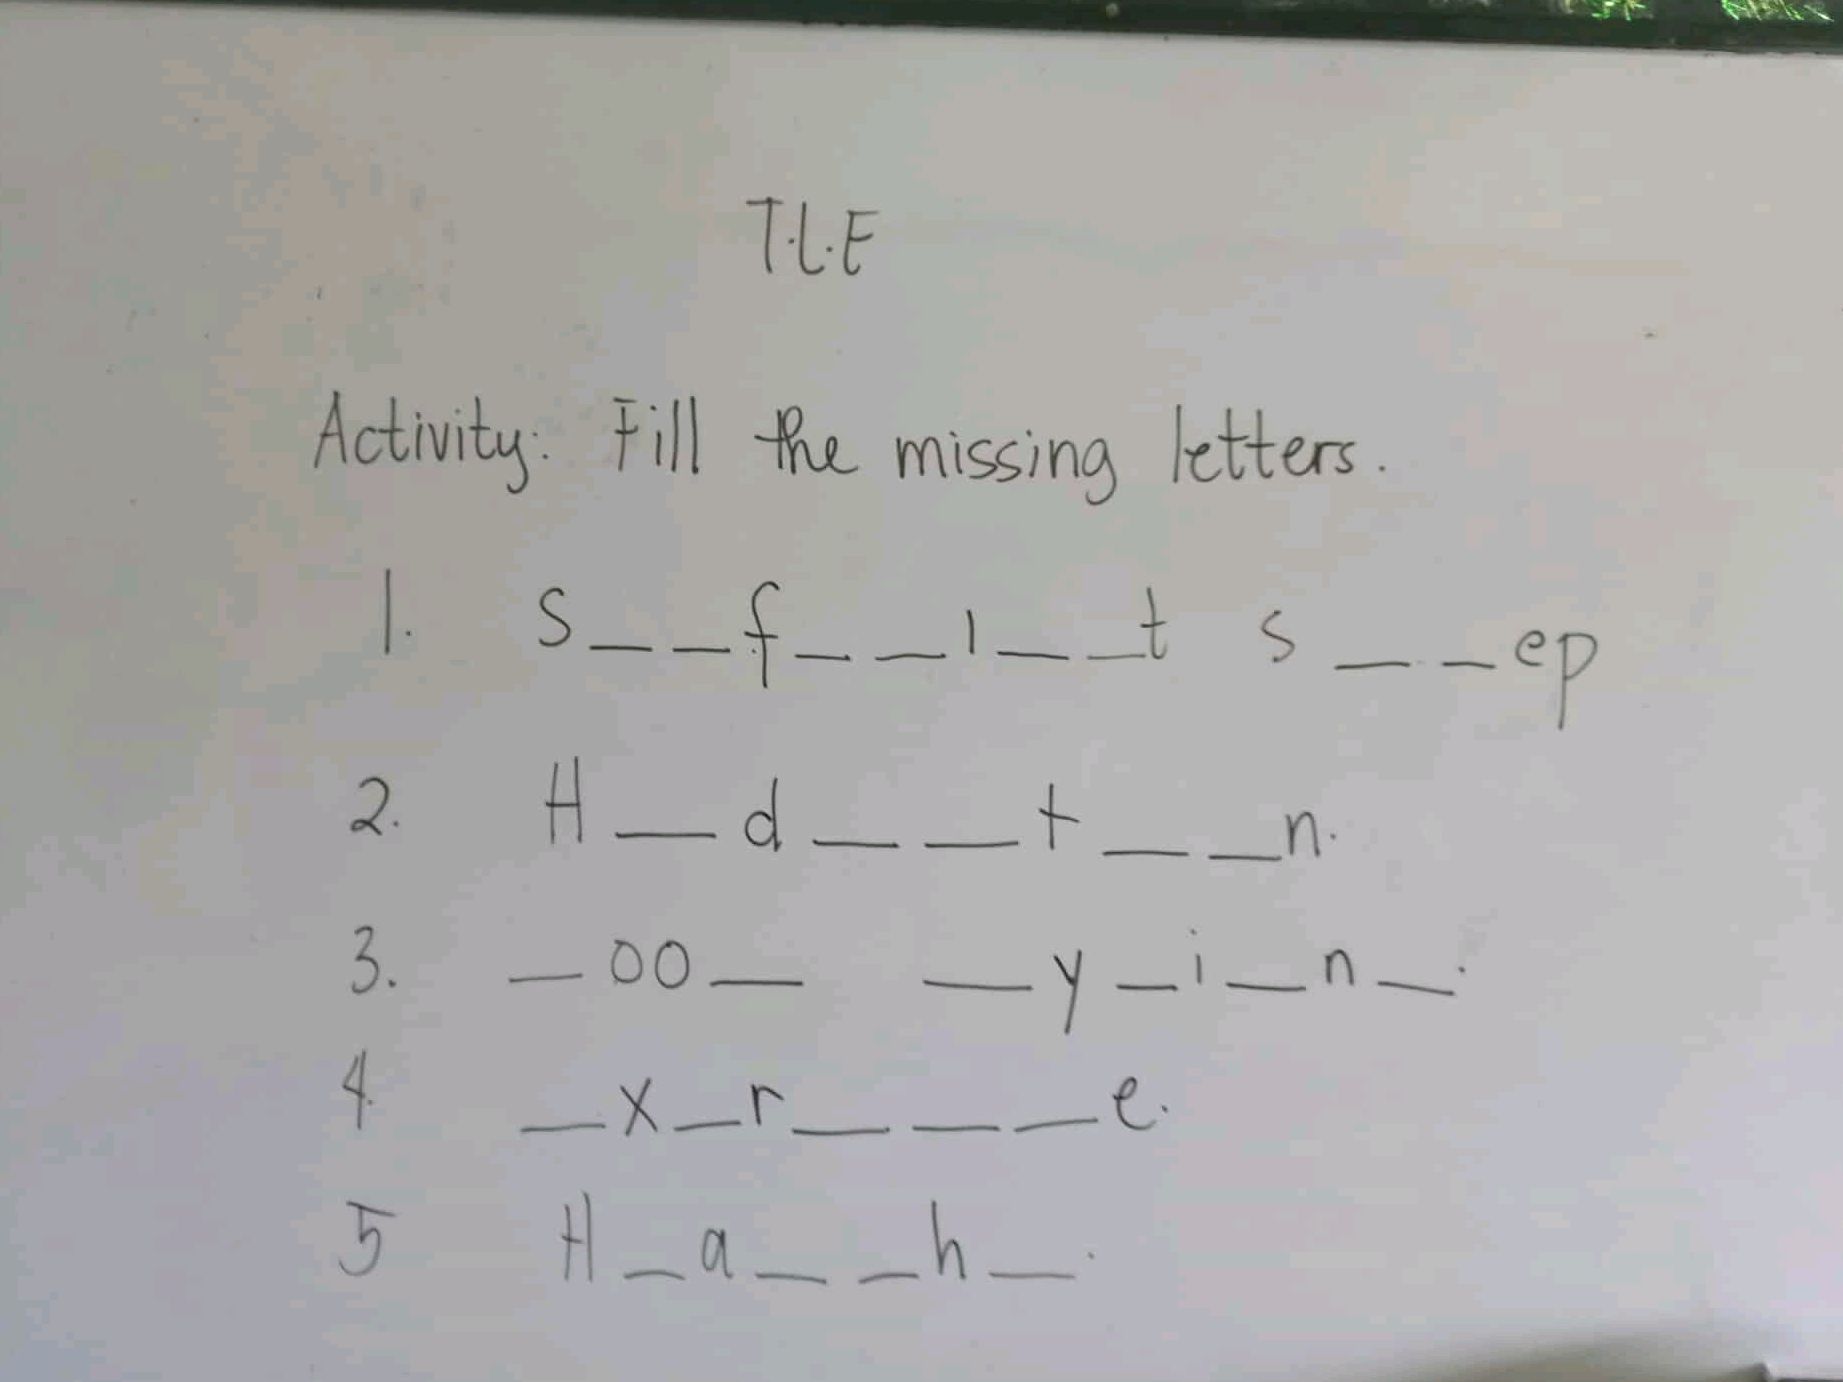 T.L.E
Activity: Fill the missing letters.
1. S__f__i__t s__ep
2. H_d__t__n.
3. _oo_ _y_i_n_.
4. _x_r___e.
5 H_a__h_.